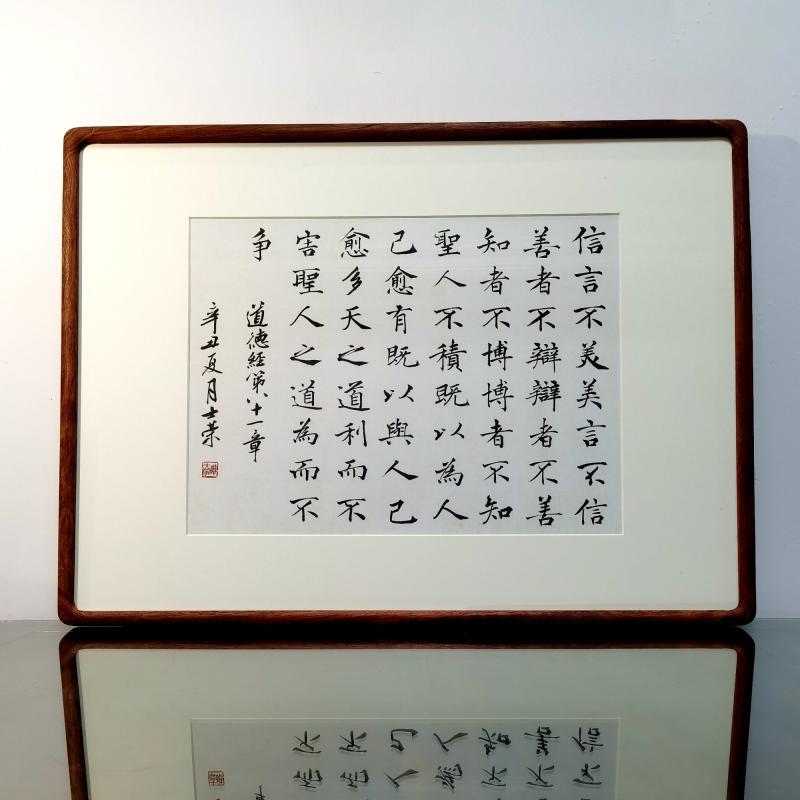 信言不美美言不信
善者不辯辯者不善
知者不博博者不知
聖人不積既以為人
己愈有既以與人己
愈多天之道利而不
害聖人之道為而不
争 道德經第八十一章
辛丑夏月士荣